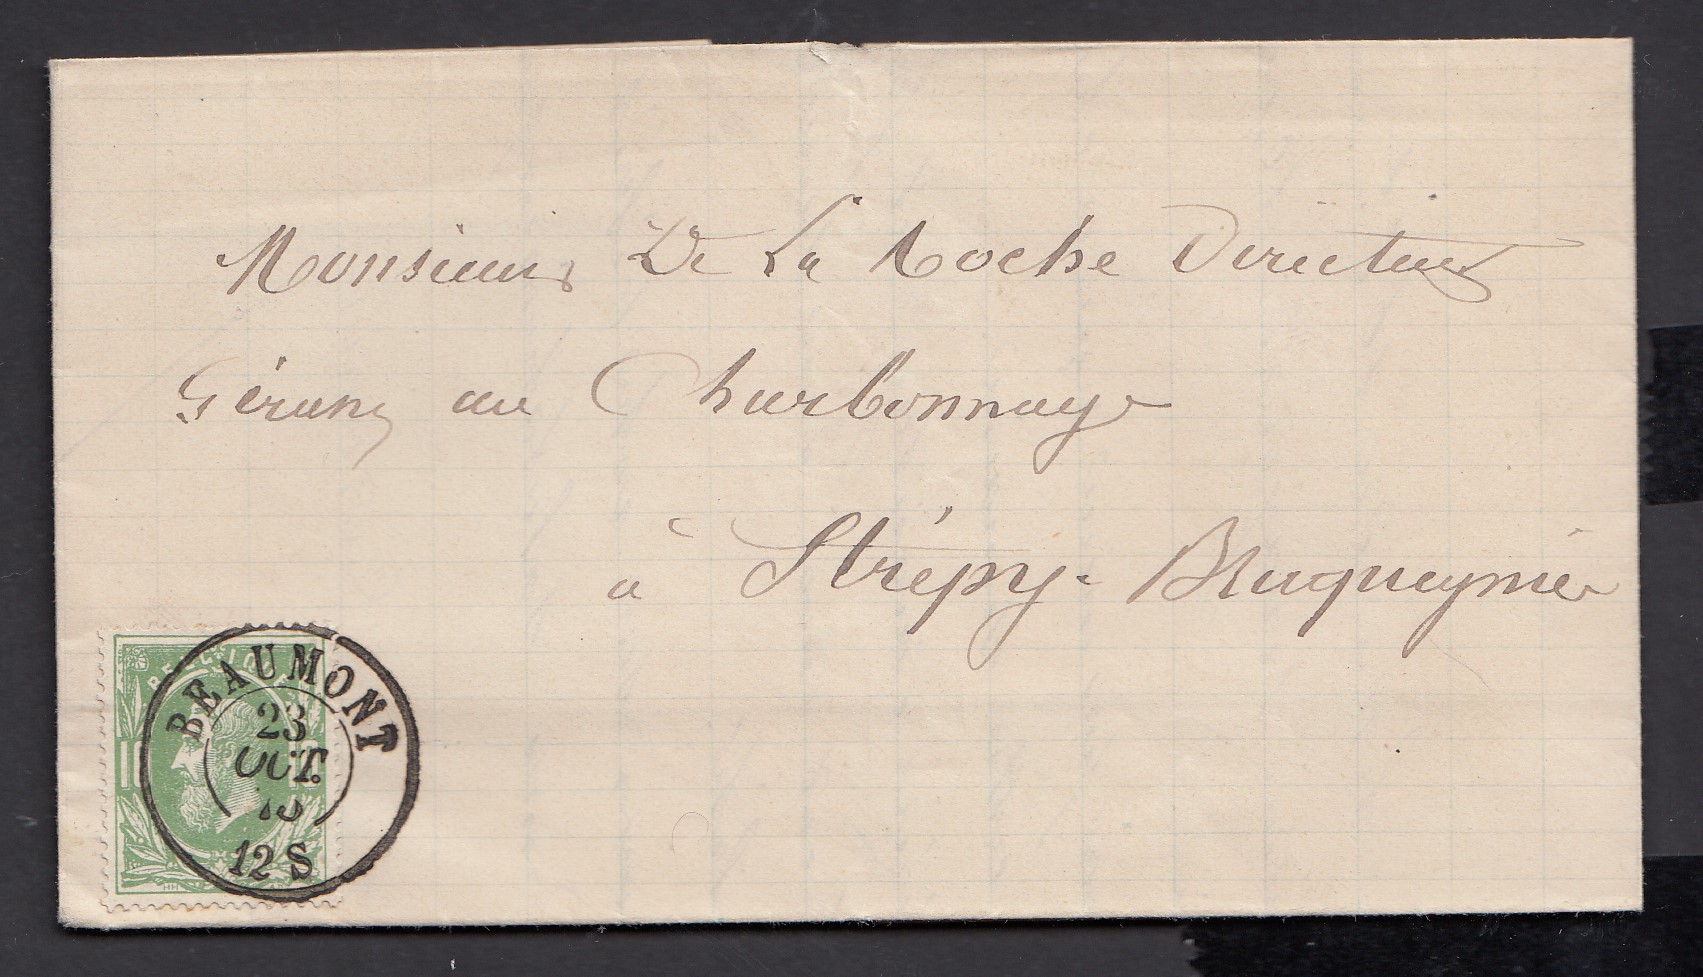 Monsieur De La Roche Directeur
Gérant au Charbonnage
à Strépy-Bracquegnies
BELGIQUE
BEAUMONT
23
OCT.
12 S